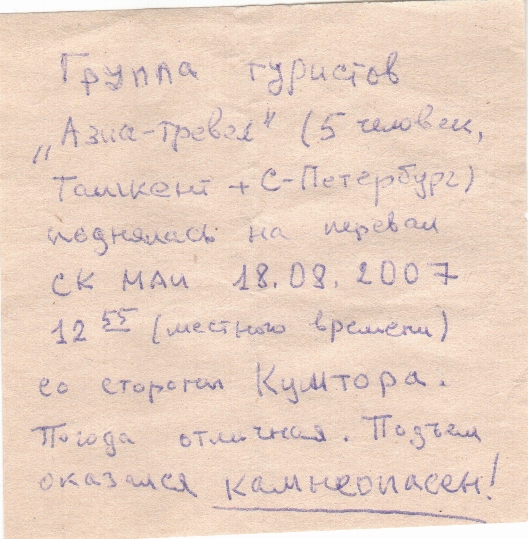 Группа туристов
„Азиа-тревел" (5 человек,
Ташкент + С-Петербург)
поднялась на перевал
СК МАИ 18.08.2007
12 55 (местного времени)
со стороны Кумтора.
Погода отличная. Подъем
оказался камнеопасен!